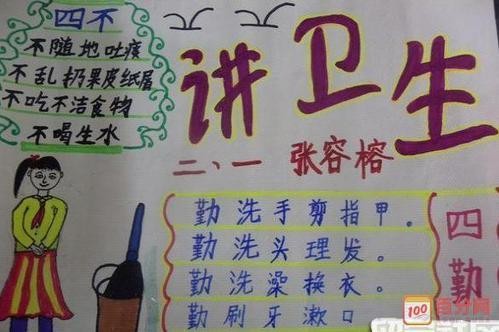 四不
不随地吐痰
不乱扔果皮纸屑
不吃不洁食物
不喝生水
讲卫生
二、一 张容榕
勤洗手剪指甲。
勤洗头理发。
勤洗澡换衣。
勤刷牙漱口
四勤
100 百分网